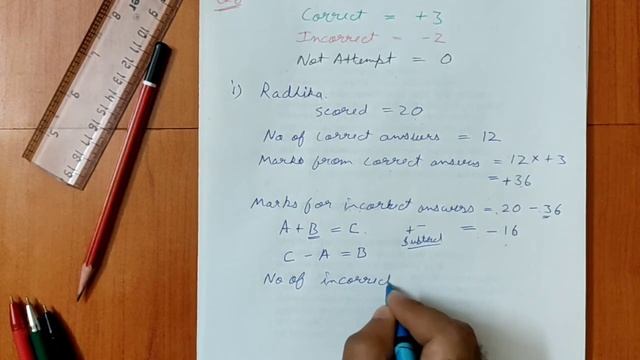 Correct = +3
Incorrect = -2
Not Attempt = 0
i) Radhika.
scored = 20
No of correct answers = 12
Marks from correct answers = 12 × +3
= +36
Marks for incorrect answers = 20 - 36
A + B = C. +- = -16
Subtract
C - A = B
No of incorrect